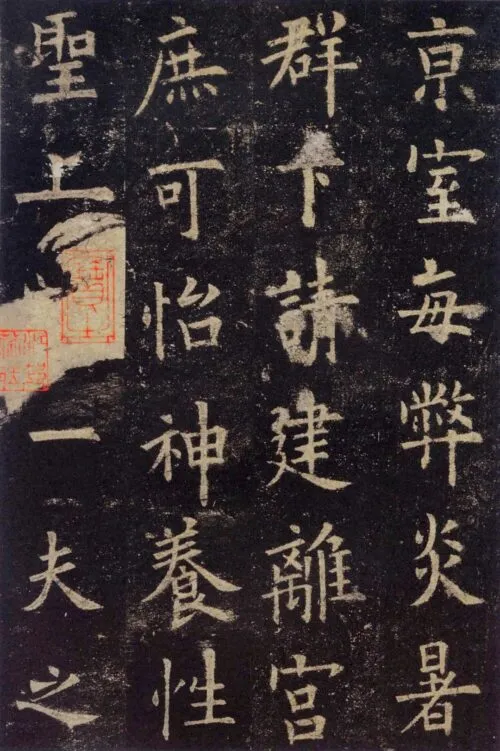 京室每弊炎暑
群下請建離宮
庶可怡神養性
聖上
一夫之